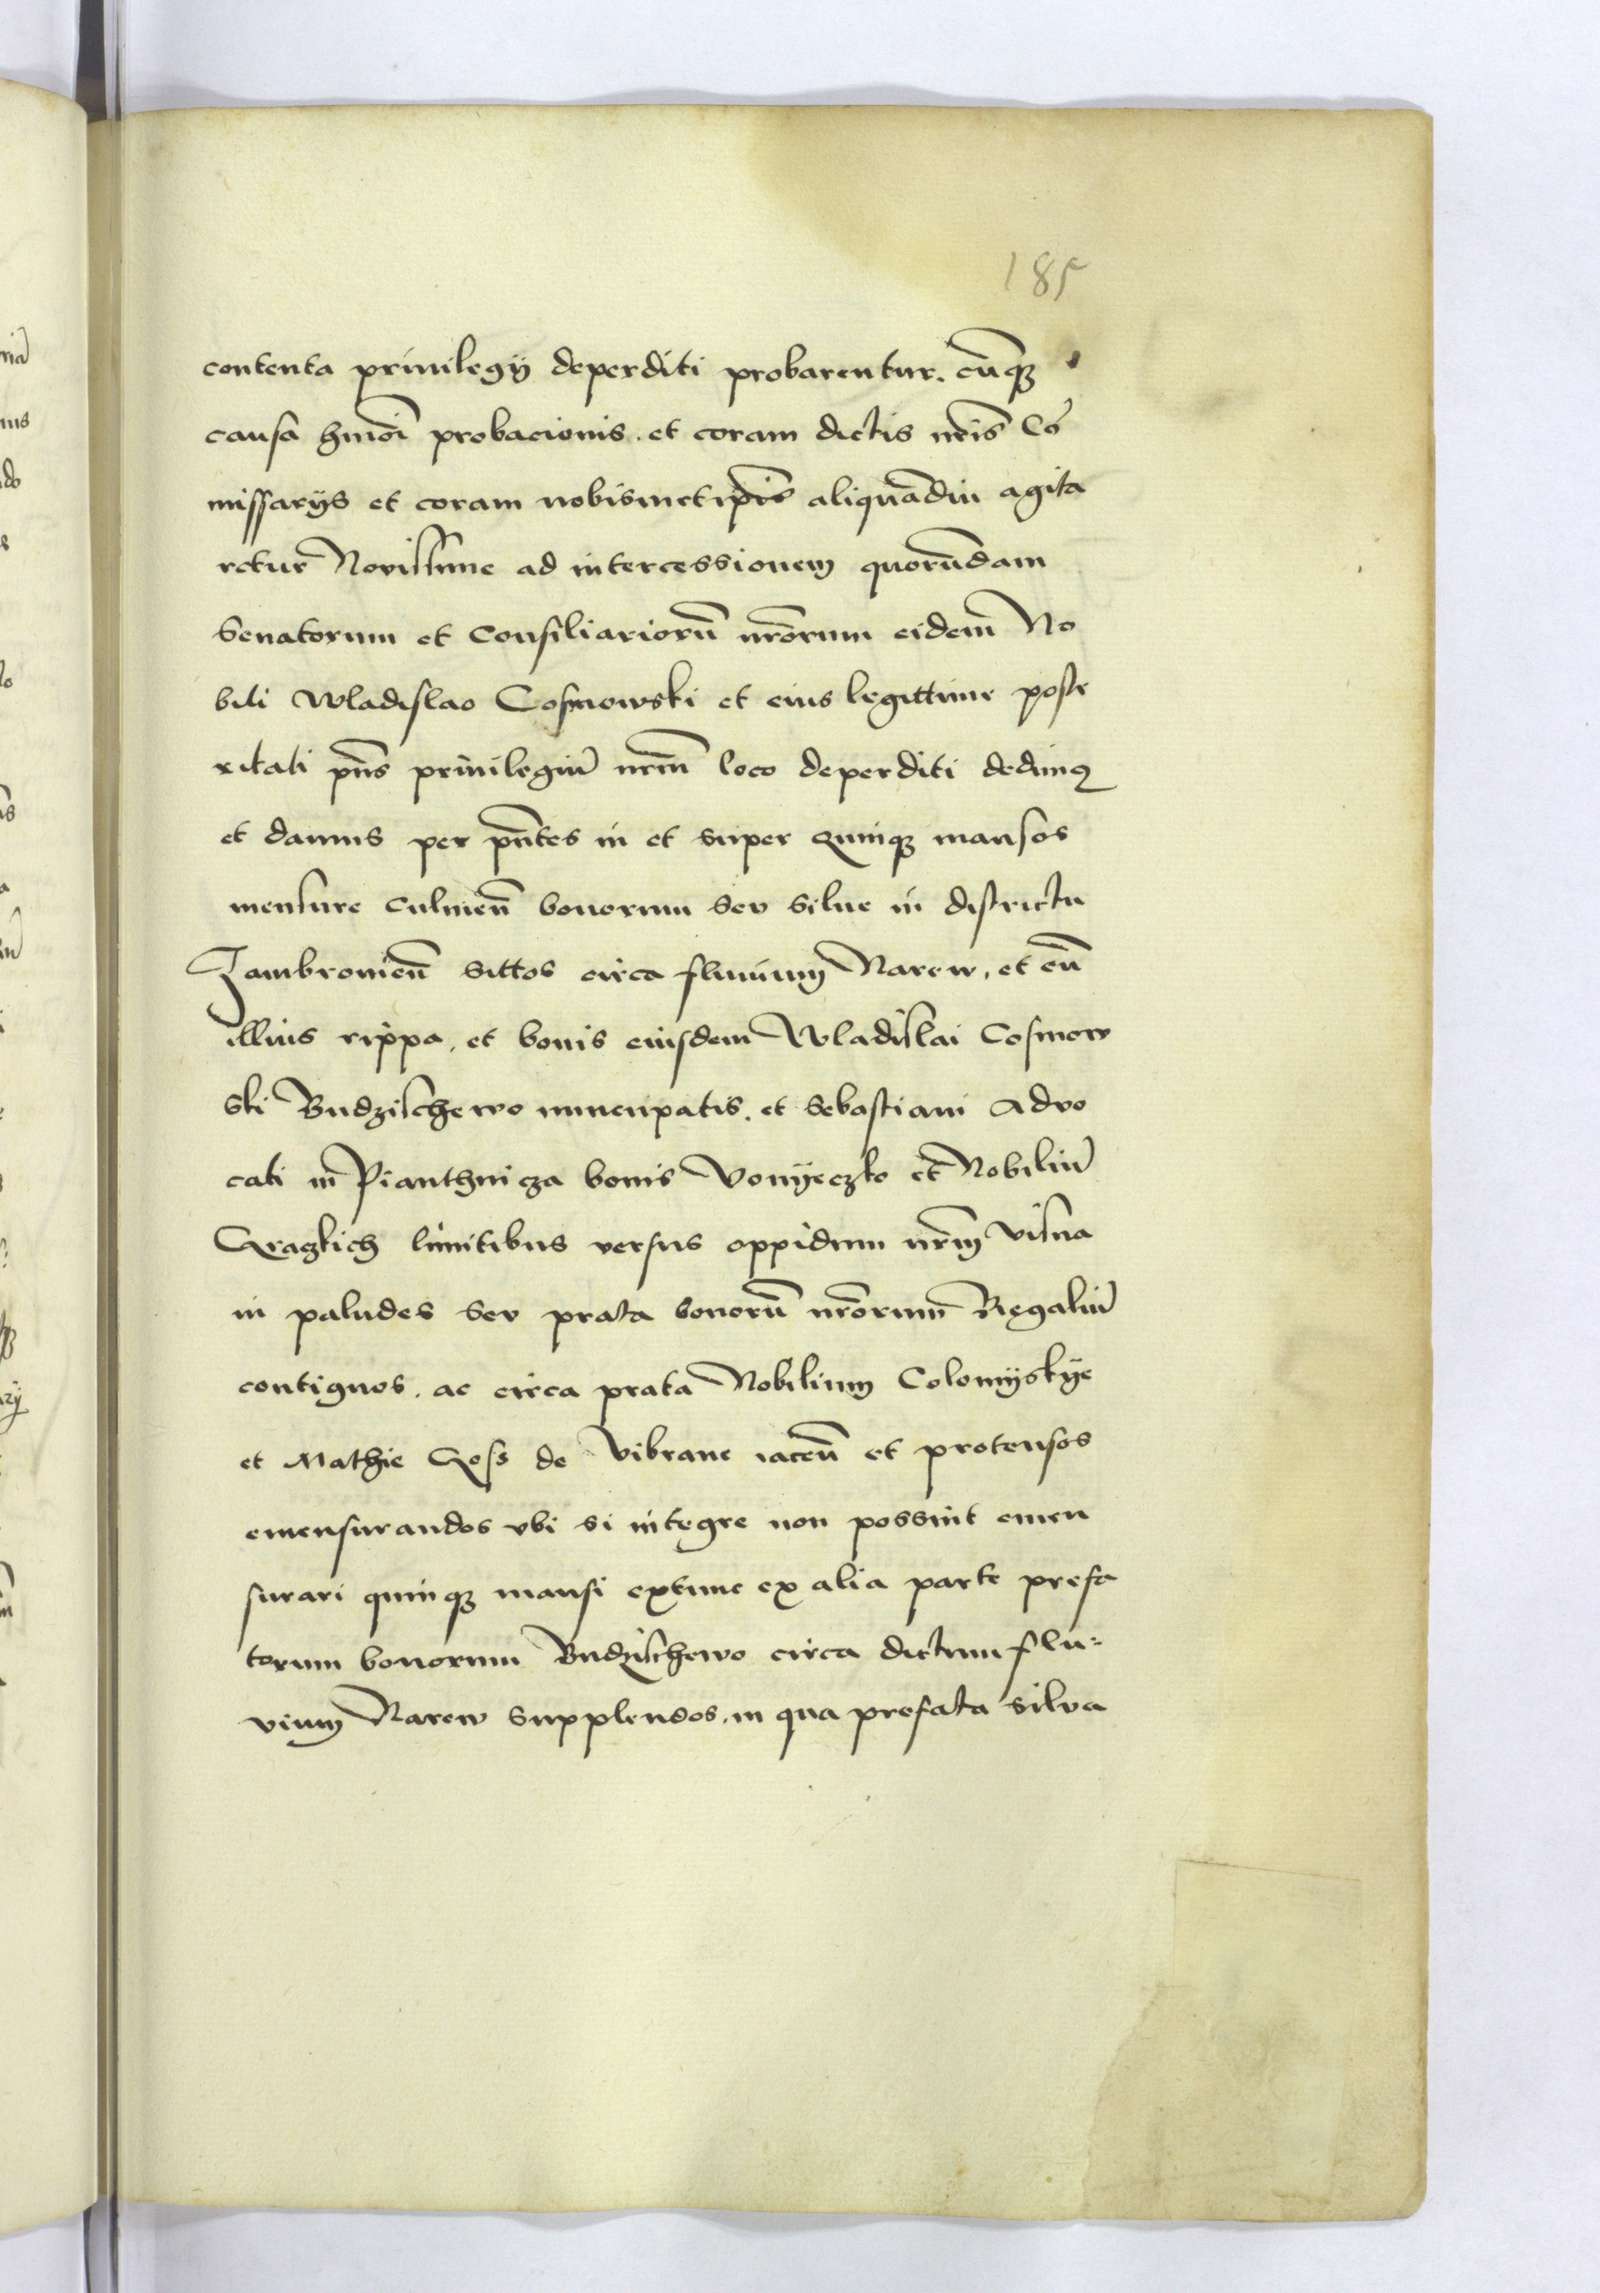 185
contenta priuilegij deperditi probarentur. cũq₃
causa hmõi probacionis. et coram dictis nr̃is Cõ
missarijs et coram nobismetip̃is aliquãdiu agita
retur Novissime ad intercessionem quorũdam
Senatorum et Consiliariorũ nr̃orum eidem No
bili Wladislao Cosmowski et eius legittime poste
ritati pñs priuilegiũ nr̃m loco deperditi dedimus
et damus per pñtes in et super quinq₃ mansos
mensure culmeñ bonorum seu silue in districtu
Zambromieñ sittos circa fluuium Narew, et cũ
illius rippa, et bonis eiusdem Wladislai Cosmow
ski Budzischewo nuncupatis. et Sebastiani Advo
cati in Pianthnicza bonis Vonÿeczko et Nobiliũ
Gragkich limitibus versus oppidum nr̃m Visna
in paludes seu prata bonorũ nr̃orum Regaliũ
contiguos. ac circa prata Nobilium Colomÿskÿe
et Mathie Goss de Vibrane iaceñ et protensos
emensurandos vbi si integre non possint emen
surari quinq₃ mansi extunc ex alia parte prefa
torum bonorum Budzischewo circa dictum flu=
vium Narew supplendos. in qua prefata silva